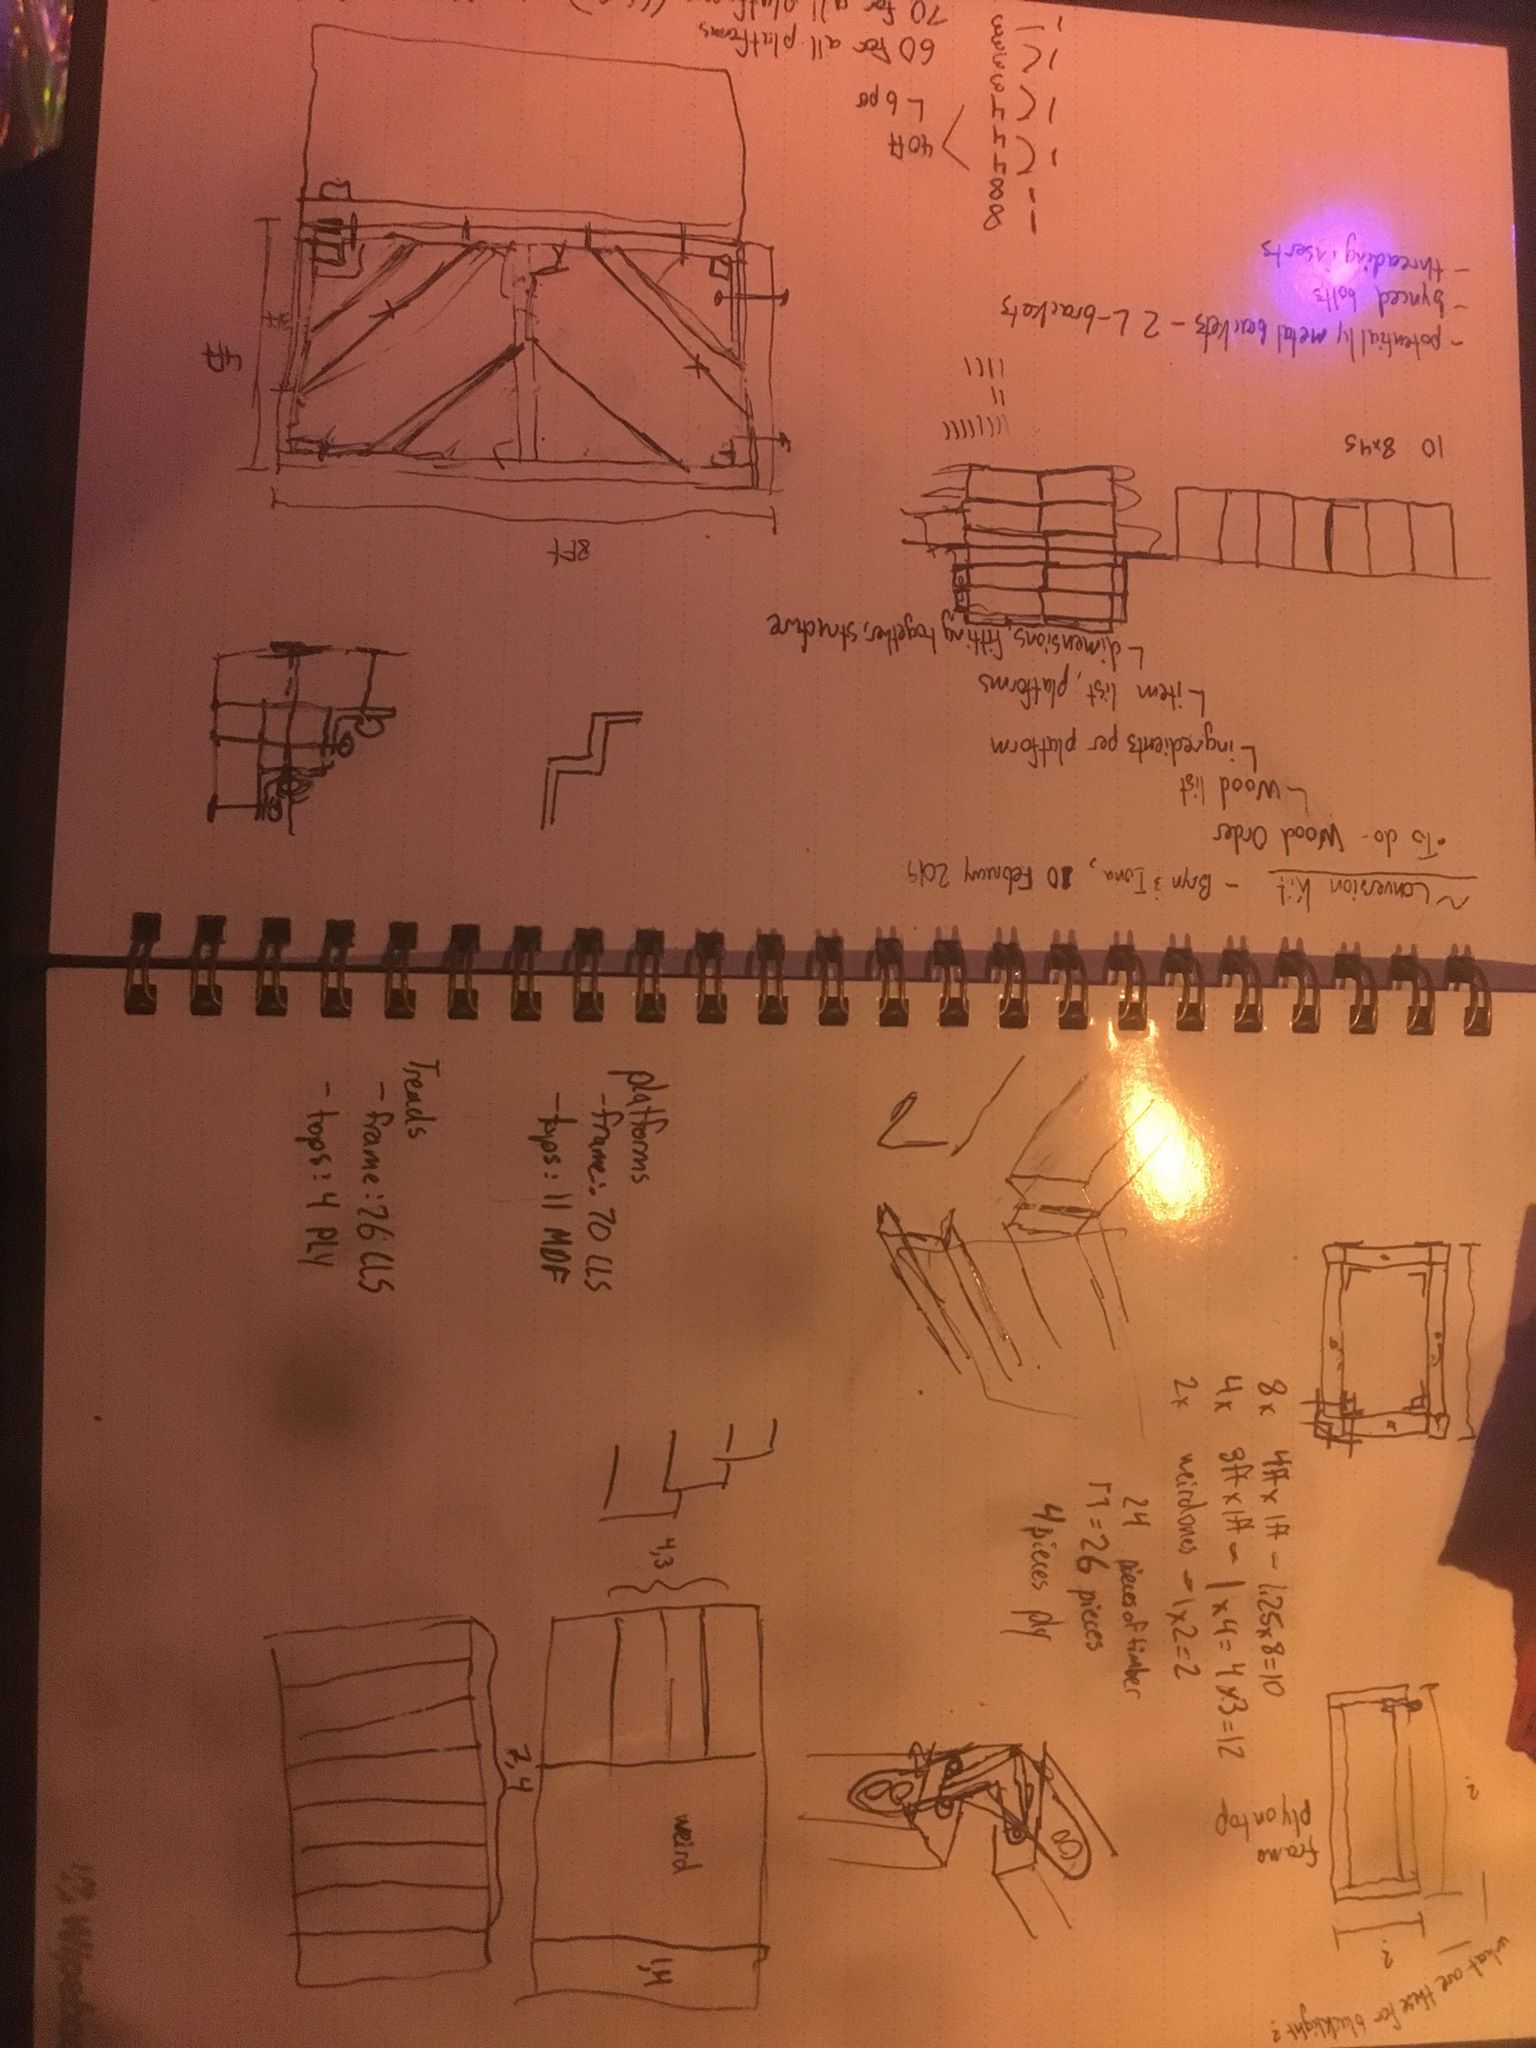 ~ Conversion Kit - Bryn & Iona, 10 February 2019
• To do - Wood Order
- Wood list
L ingredients per platform
L item list, platforms
L dimensions, fitting together, structure
10 8x4s
- potentially metal brackets - 2 L-brackets
- bynced bolts
- threading inserts
8
8
4
4
3
3
3
3
40ft
L 6 po
60 for all platforms
70 for all platforms
8ft
4ft
what are these for blacklight?
?
?
frame
ply on top
8x 4ft x 1ft - 1.25x8=10
4x 8ft x 1ft - 1x4=4x3=12
2x weird ones - 1x2=2
24 pieces of timber
= 26 pieces
4 pieces ply
Platforms
- frame: 70 CLS
- tops: 11 MDF
Treads
- frame: 26 CLS
- tops: 4 PLY
4,3
weird
1,4
7,4